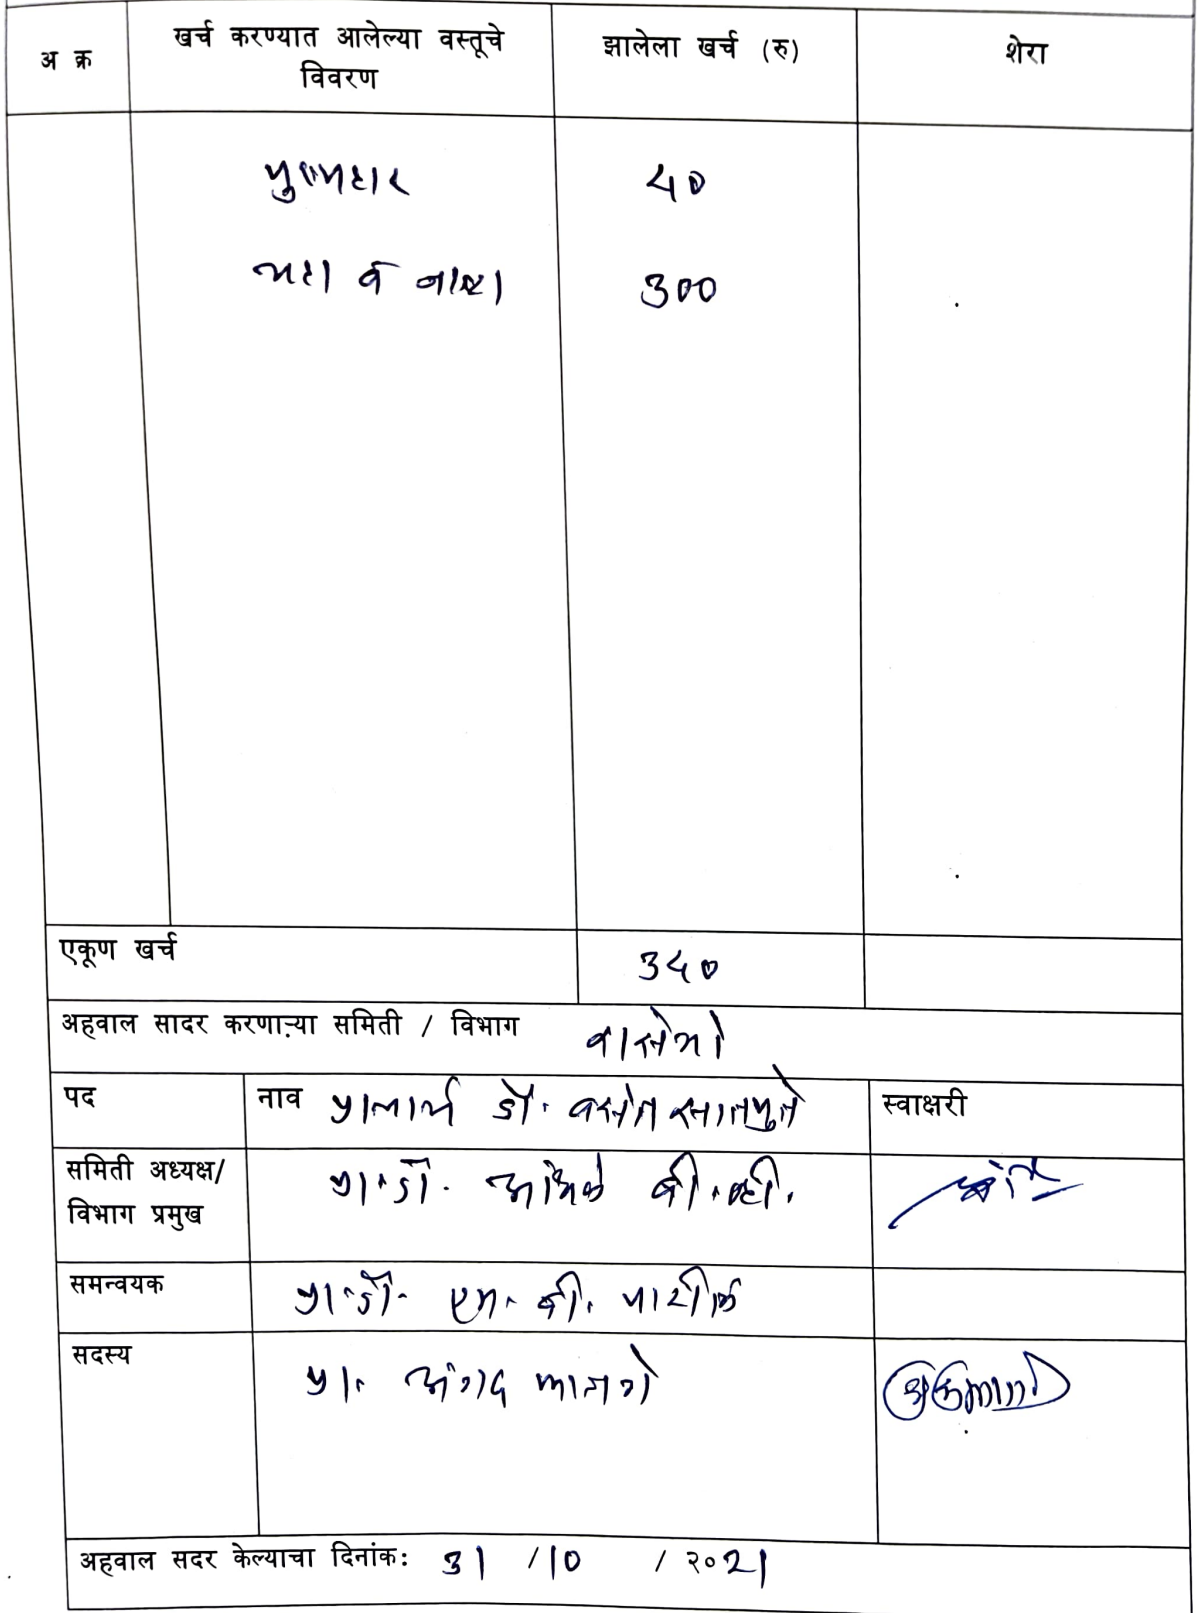 अ क्र
खर्च करण्यात आलेल्या वस्तूचे
विवरण
झालेला खर्च (रु)
शेरा
पुष्पहार ५०
चहा व नाश्ता ३००
एकूण खर्च ३५०
अहवाल सादर करणाऱ्या समिती / विभाग रासेयो
पद नाव प्राचार्य डॉ. वसंत सातपुते स्वाक्षरी
समिती अध्यक्ष/
विभाग प्रमुख
प्रा.डॉ. बी.व्ही.
समन्वयक प्रा.डॉ. एम. बी. पाटील
सदस्य प्रा. अंगद
अहवाल सदर केल्याचा दिनांक: ३१ /१० / २०२१